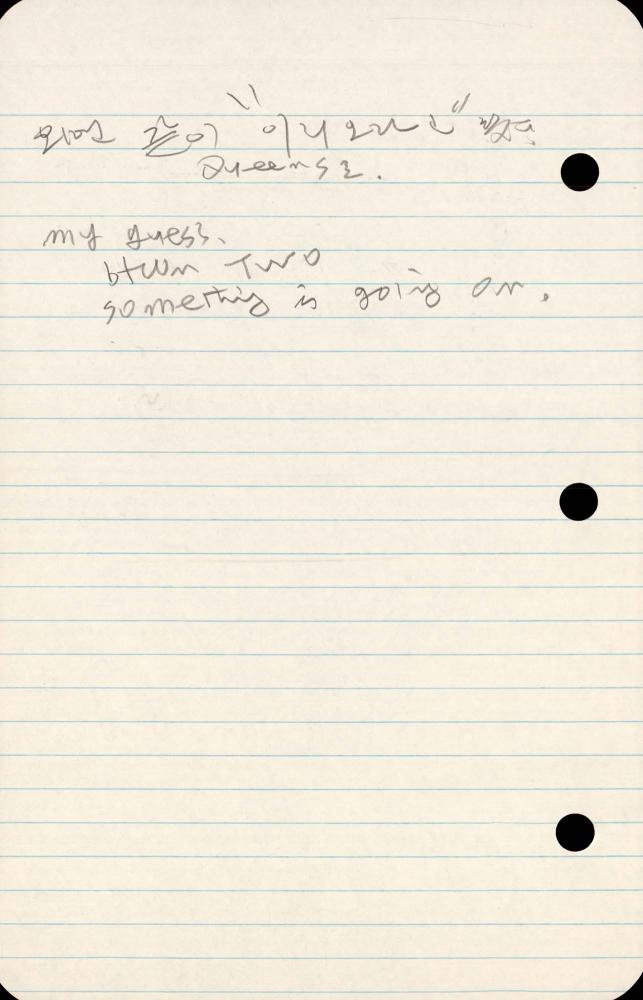 같이 "이리 오라고"
Queens로.
my guess.
btwn Two
something is going on.